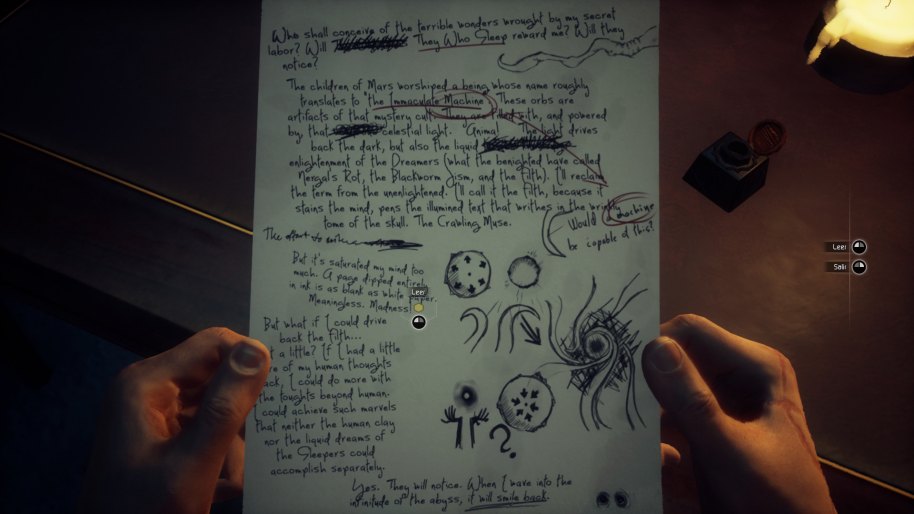 Who shall conceive of the terrible wonders wrought by my secret
labor? Will They Who Sleep reward me? Will they
notice?
The children of Mars worshiped a being whose name roughly
translates to "the Immaculate Machine". These orbs are
artifacts of that mystery cult. They are filled with, and powered
by, that celestial light. "Anima". The light drives
back the dark, but also the liquid
enlightenment of the Dreamers (what the benighted have called
Nergal's Rot, the Blackworm Jism, and the filth). I'll reclaim
the term from the unenlightened. I'll call it the filth, because it
stains the mind, pens the illumined text that writhes in the wrinkly
tome of the skull. The Crawling Muse.
Would a machine
be capable of this?
The effort to
But it's saturated my mind too
much. A page dipped entirely
in ink is as blank as white paper.
Meaningless. Madness.
Leer
But what if I could drive
back the filth...
t a little? If I had a little
re of my human thoughts
ack, I could do more with
the toughts beyond human.
I could achieve such marvels
that neither the human clay
nor the liquid dreams of
the Sleepers could
accomplish separately.
?
Yes. They will notice. When I wave into the
infinitude of the abyss, it will smile back.
Leer
Salir